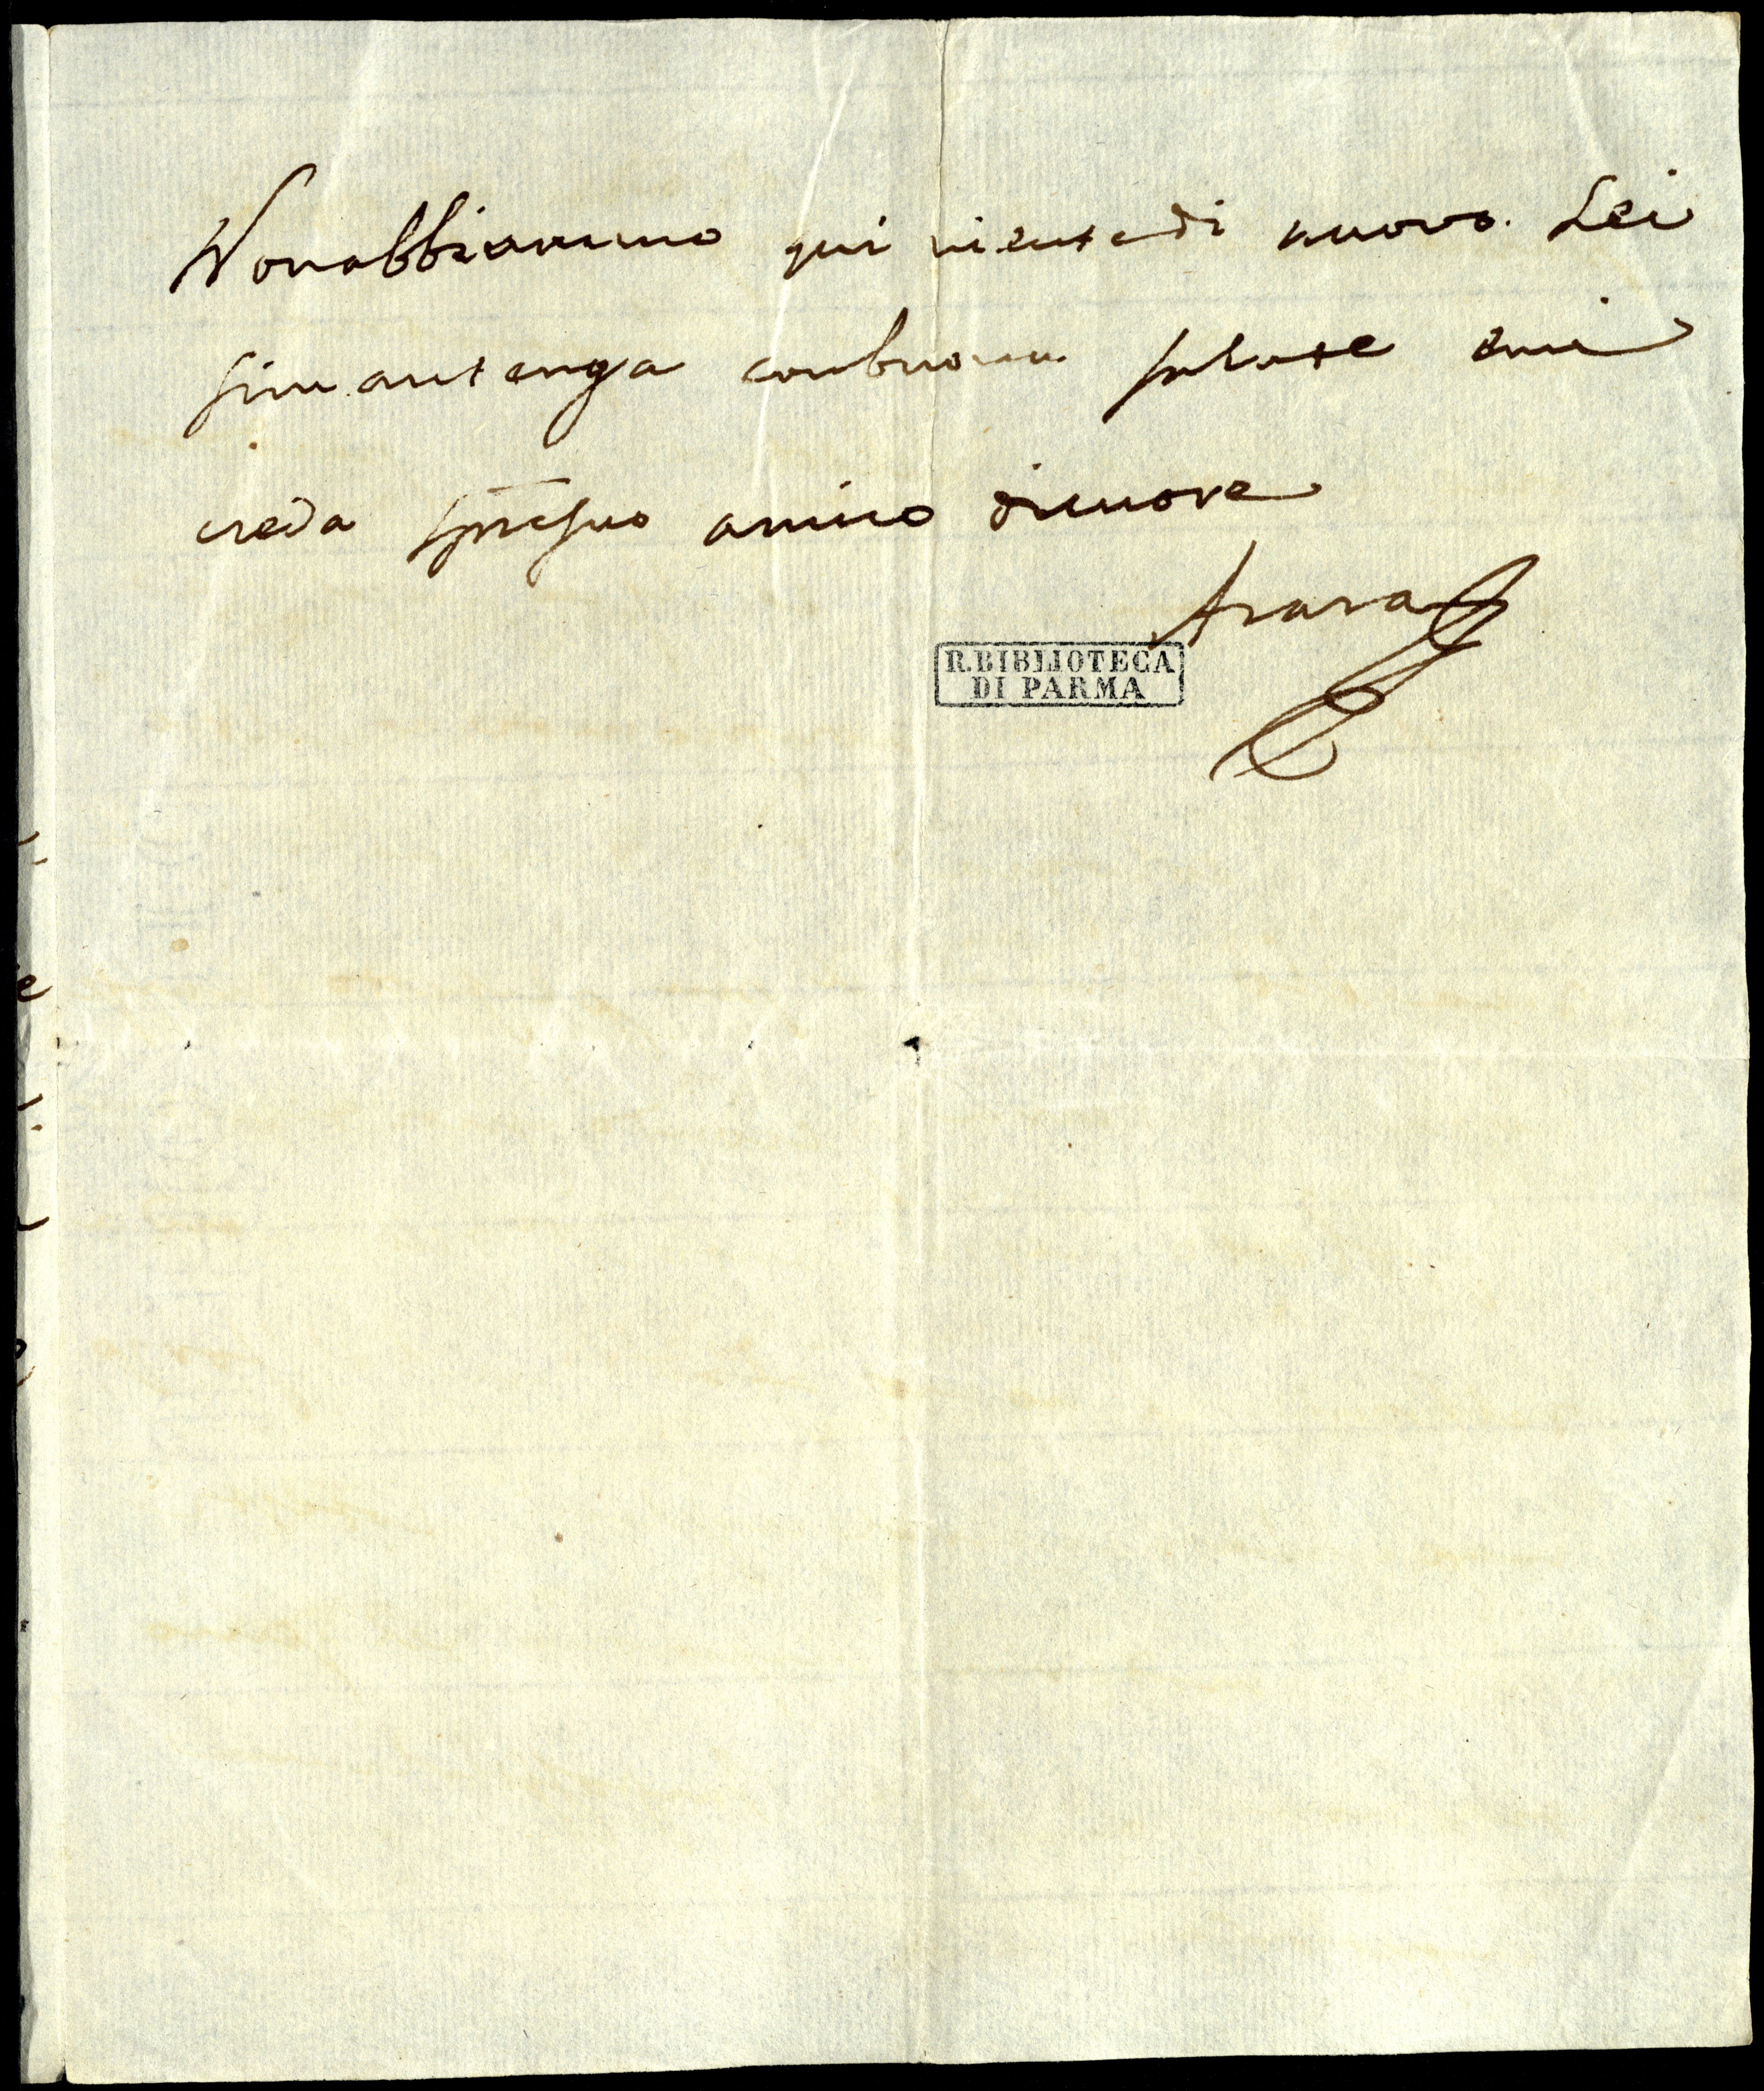 Nonabbiammo qui nientedi nuovo. Lei
simantenga conbuona salute emi
creda sp̄resuo amico dicuore
Azara
R. BIBLIOTECA
DI PARMA